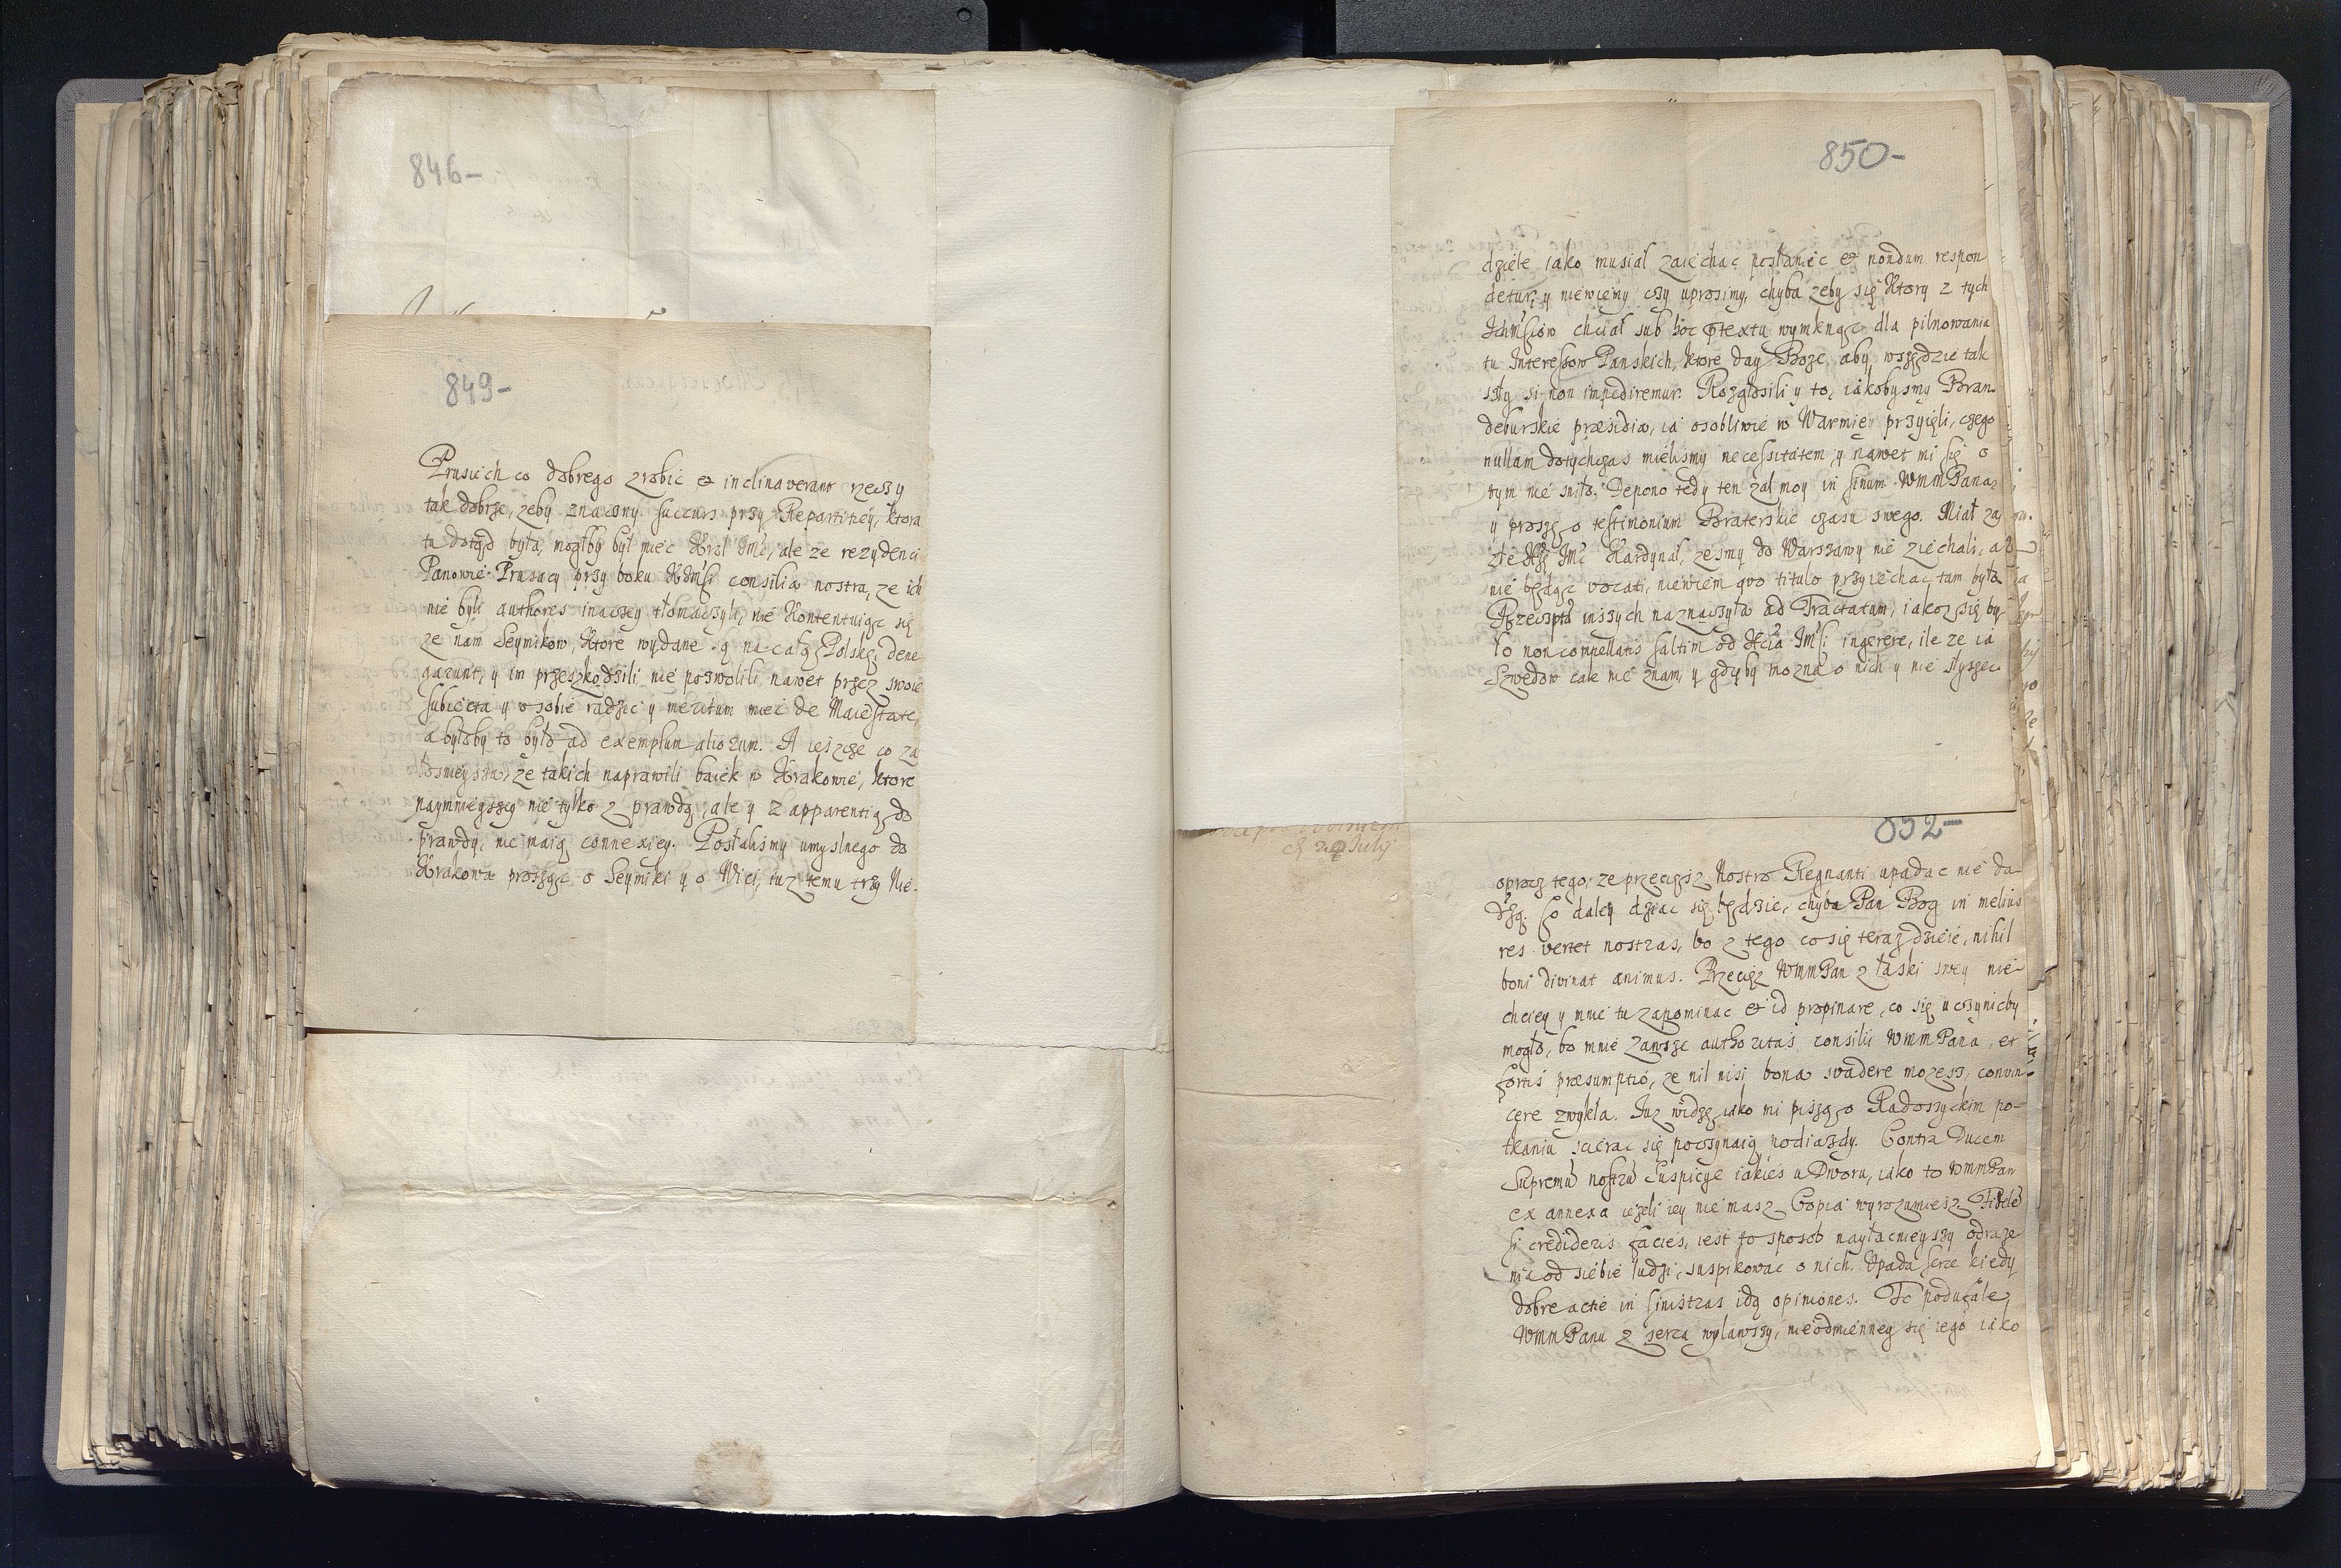 846-
849-
Prusiech co dobrego zrobic et inclinaverant rzeczy
tak dobrze, zeby znaczny succurs przy Repartitiey, ktora
tu dotąd była, mogłby był miec Krol Jmc, ale ze rezydenci
Panowie Prusacy przy boku KJMsi consilia nostra, ze ich
nie byli authores inaczey tłomaczyli, nie kontentuiąc się
ze nam Seymikow, ktore wydane są na całą Polskę, dene
garunt, y im przeszkodzili nie pozwolili nawet przez swoie
subiecta y o sobie radzic y meritum miec de Maiestate,
a byłoby to było ad exemplum aliorum. A ieszcze co za
łosnieysza, ze takich naprawili baiek w Krakowie, ktore
naymnieyszey nie tylko z prawdą, ale y z apparentią do
prawdy, nie maią connexiey. Posłalismy umyslnego do
Krakowa prosząc o Seymiki y o Wici, iuz temu trzy Nie-
850-
dziele iako musiał zaiechac posłaniec et nondum respon
detur, y niewiemy czy uprosimy, chyba zeby się ktory z tych
Ichmsciow chciał sub hoc ptextu wymknąc dla pilnowania
tu Interessow Panskich, ktore day Boze, aby wszędzie tak
szły si non impediremur. Rozgłosili y to, iakobysmy Bran-
deburskie præsidia, ia osobliwie w Warmię przyięli, czego
nullam dotychczas mielismy necessitatem, y nawet mi się o
tym nie sniło. Depono tedy ten zal moy in sinum WmmPana
y proszę o testimonium Braterskie czasu swego. Miał za
złe Xże Jmc Kardynał, zesmy do Warszawy nie ziechali, a
nie będąc vocati, niewiem qvo titulo przyiechac tam było.
Rzeczpta inszych naznaczyła ad Tractatum, iakoz się by-
ło non compellatis saltim od Xcia Jmsi ingerere, ile ze ia
Szwedow cale nie znam, y gdyby mozna o nich y nie słyszec
24 July
852-
oprocz tego, ze przeciesz Nostro Regnanti upadac nie da-
dzą. Co daley dziac się będzie, chyba Pan Bog in melius
res vertet nostras, bo z tego co się teraz dzieie, nihil
boni divinat animus. Przeciez WmmPan z łaski swey nie
chciey y mnie tu zapominac et id propinare, co się uczynicby
mogło, bo mnie zawsze authoritas consilii WmmPana, et
fortis præsumptio, ze nil nisi bona svadere mozesz, convin-
cere zwykła. Iuz widzę iako mi piszą o Radoszyckim po-
tkaniu scierac się poczynaią podiazdy. Contra Ducem
Supremu nostru Suspicye iakies u Dworu, iako to WmmPan
ex annexa iezeli iey nie masz Copia wyrozumiesz. Fidele
si credideris facies, iest to sposob nayłacnieyszy odraze
nia od siebie ludzi, suspikowac o nich. Upada serce kiedy
dobre actie in sinistras idą opiniones. To poduFałe,
WmmPanu z serca wylawszy, nieodmienney się iego iako